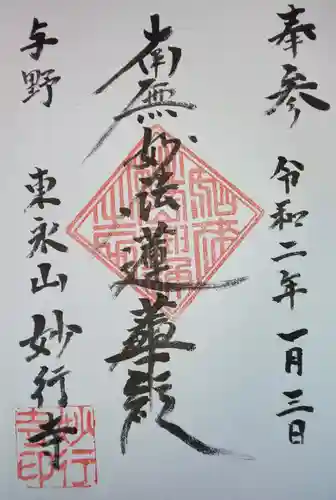 奉参
令和二年一月三日
南無妙法蓮華経
与野
東永山妙行寺
妙行寺印